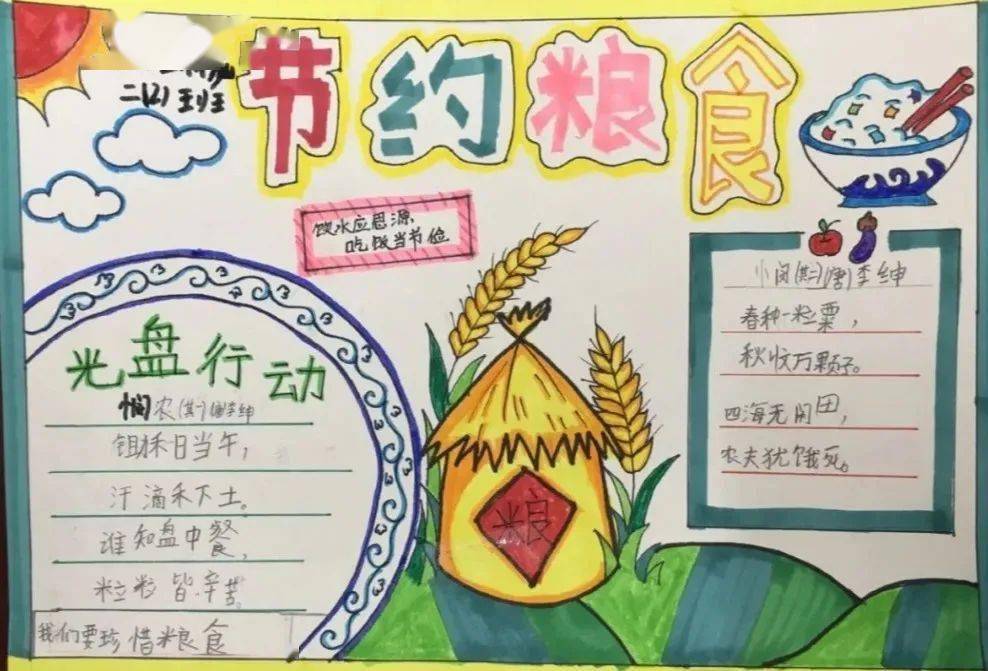 节约粮食
二(2)班
饮水应思源,
吃饭当节俭
光盘行动
悯农(其一)唐李绅
锄禾日当午,
汗滴禾下土。
谁知盘中餐,
粒粒皆辛苦。
我们要珍惜粮食
粮
悯(其二)(唐)李绅
春种一粒粟,
秋收万颗子。
四海无闲田,
农夫犹饿死。